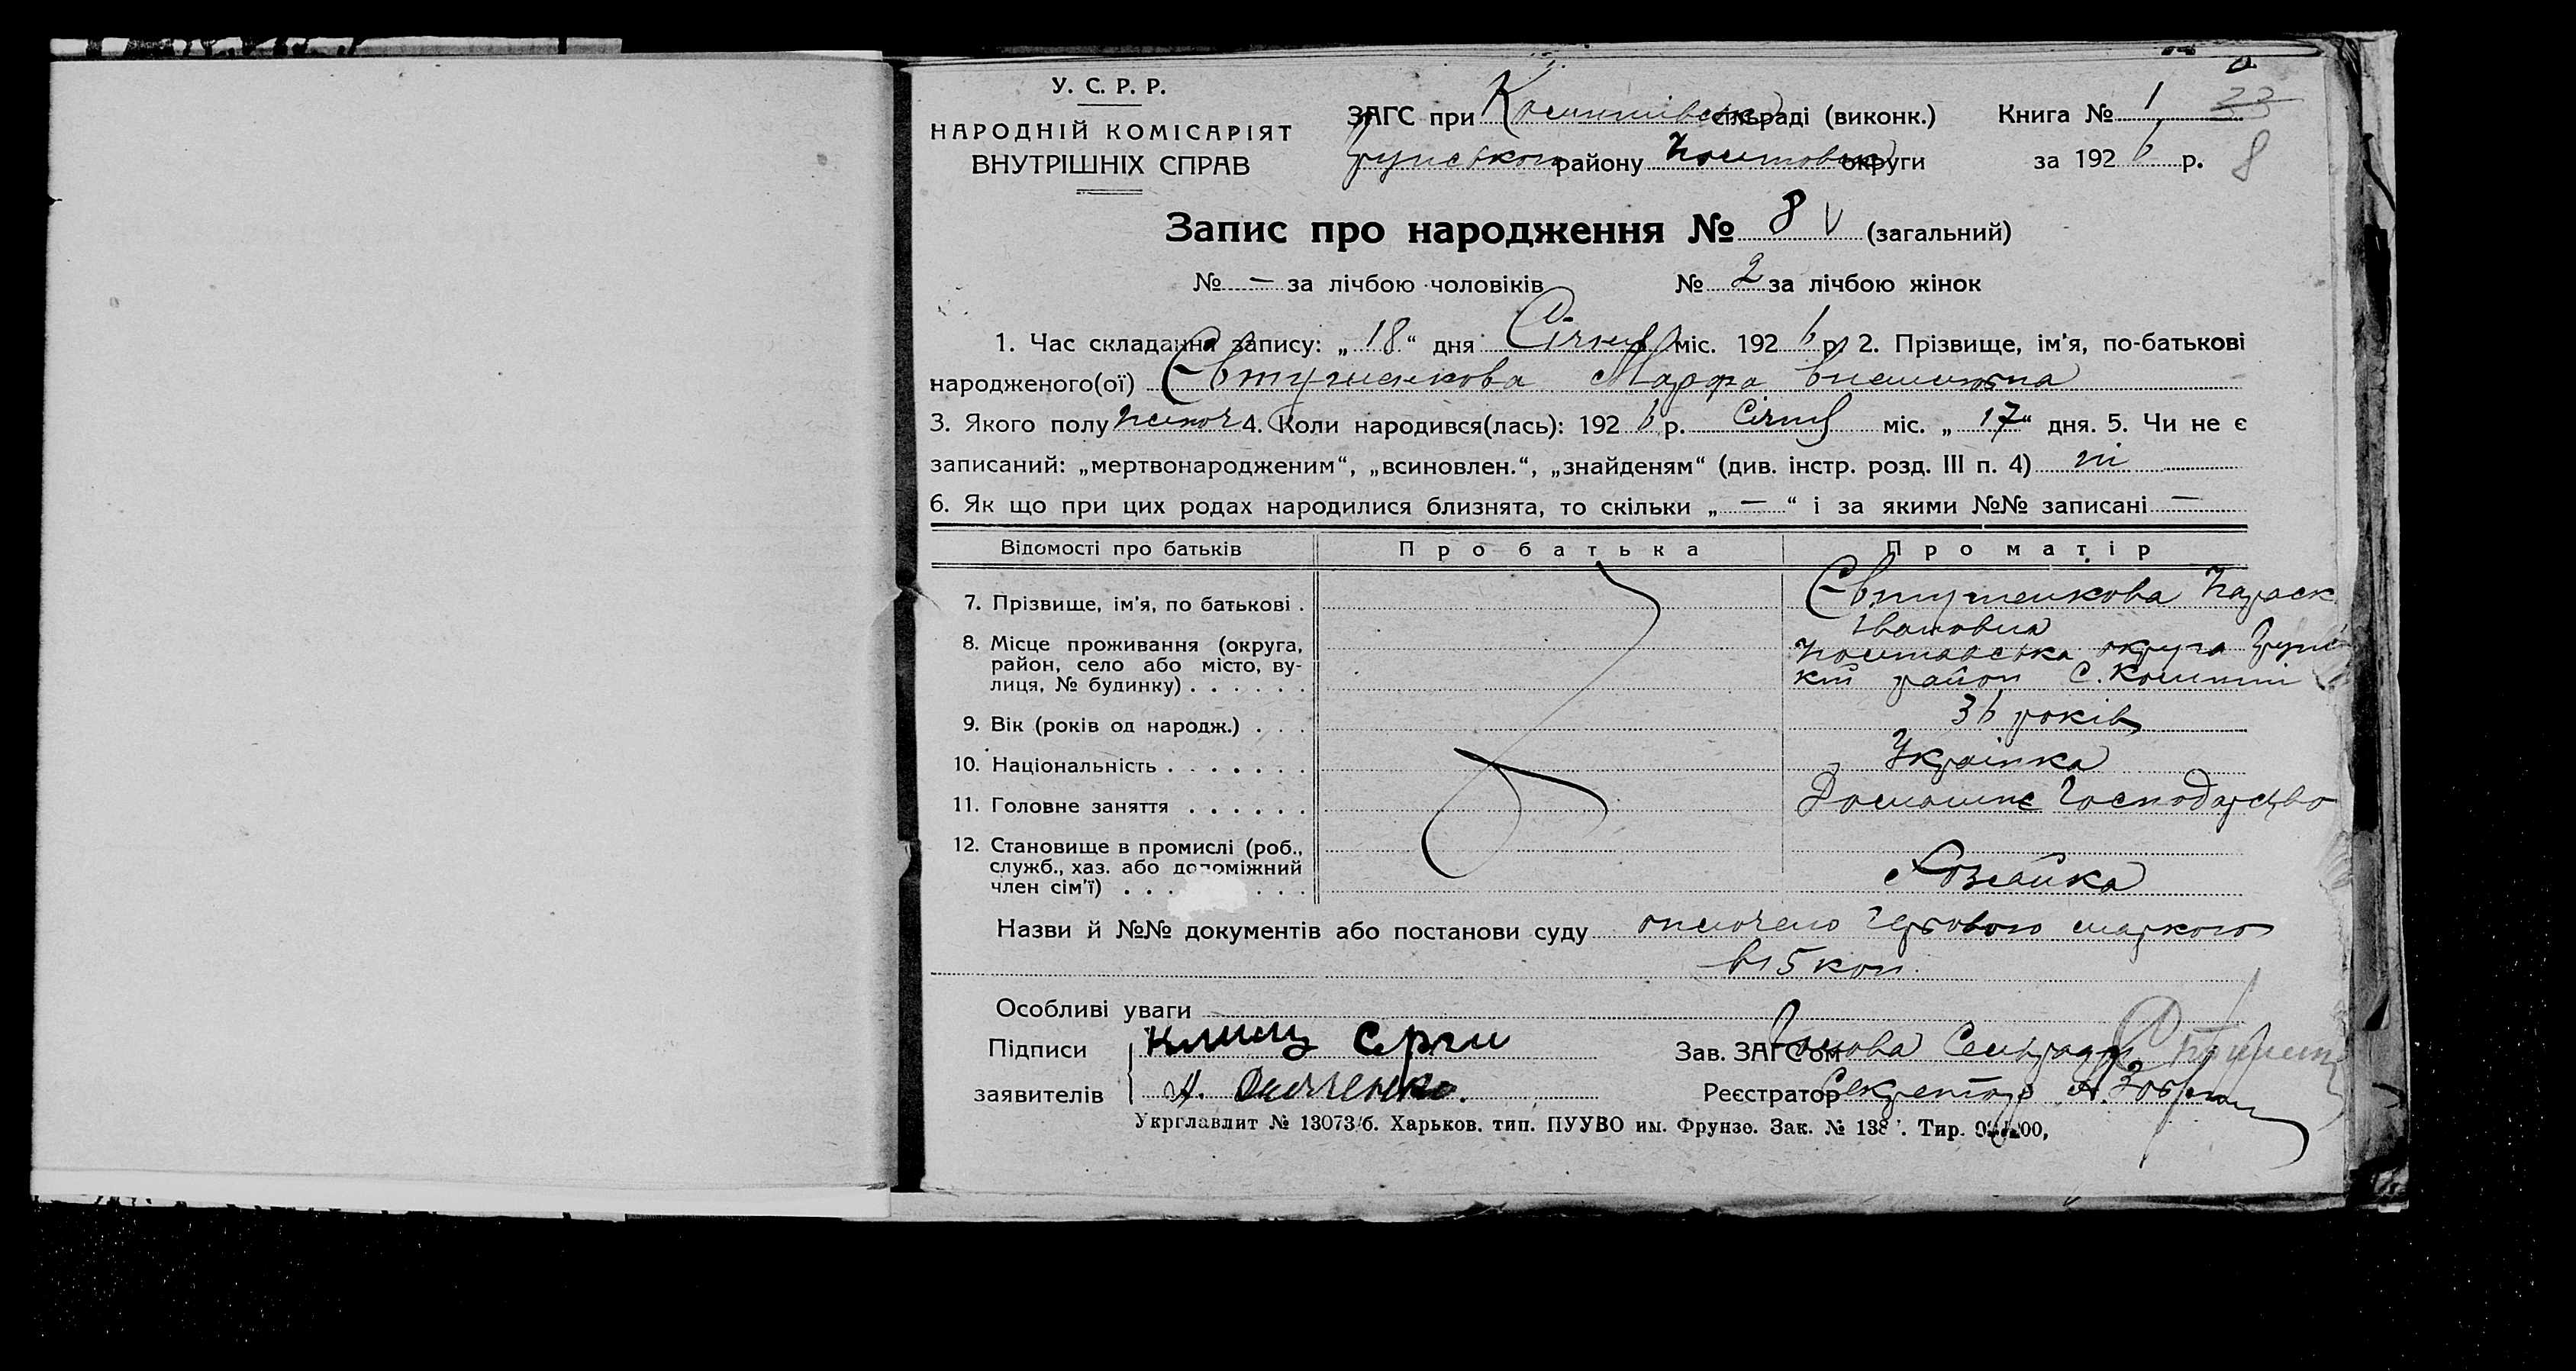 У. С. Р. Р.
НАРОДНІЙ КОМІСАРІЯТ
ВНУТРІШНІХ СПРАВ
ЗАГС при сільраді (виконк.)
району округи
Книга № 1 23
за 1926 р. 8
Запис про народження № 8 V (загальний)
№ — за лічбою чоловіків № 2 за лічбою жінок
1. Час складання запису: „ 18 “ дня Січня міс. 1926 р. 2. Прізвище, ім'я, по-батькові
народженого(ої) Євтушенкова Марфа
3. Якого полу жіноч 4. Коли народився(лась): 1926 р. Січня міс. „ 17 “ дня. 5. Чи не є
записаний: „мертвонародженим“, „всиновлен.“, „знайденям“ (див. інстр. розд. III п. 4) ні
6. Як що при цих родах народилися близнята, то скільки „ — “ і за якими №№ записані —
Відомості про батьків Про батька Про матір
7. Прізвище, ім'я, по батькові . Євтушенкова Параск
Івановна
8. Місце проживання (округа, район, село або місто, вулиця, № будинку) . . . . . . Полтавська округа
район с.
9. Вік (років од народж.) . . . 36 років
10. Національність . . . . . . . Українка
11. Головне заняття . . . . . . Домашнє Господарство
12. Становище в промислі (роб., служб., хаз. або допоміжний член сім'ї) . . . . . . . Хозяйка
Назви й №№ документів або постанови суду оплочено гербовою маркою
в 15 коп.
Особливі уваги
Підписи заявителів
Зав. ЗАГСом Голова Сельради
Реєстратор Секретарь
Укрглавлит № 13073/б. Харьков. тип. ПУУВО им. Фрунзе. Зак. № 138 . Тир.